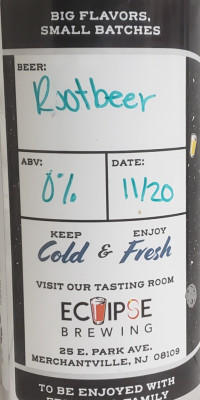 BIG FLAVORS,
SMALL BATCHES
BEER:
Rootbeer
ABV:
0%
DATE:
11/20
KEEP
Cold & Fresh
ENJOY
VISIT OUR TASTING ROOM
ECLIPSE
BREWING
25 E. PARK AVE.
MERCHANTVILLE, NJ 08109
TO BE ENJOYED WITH
FAMILY